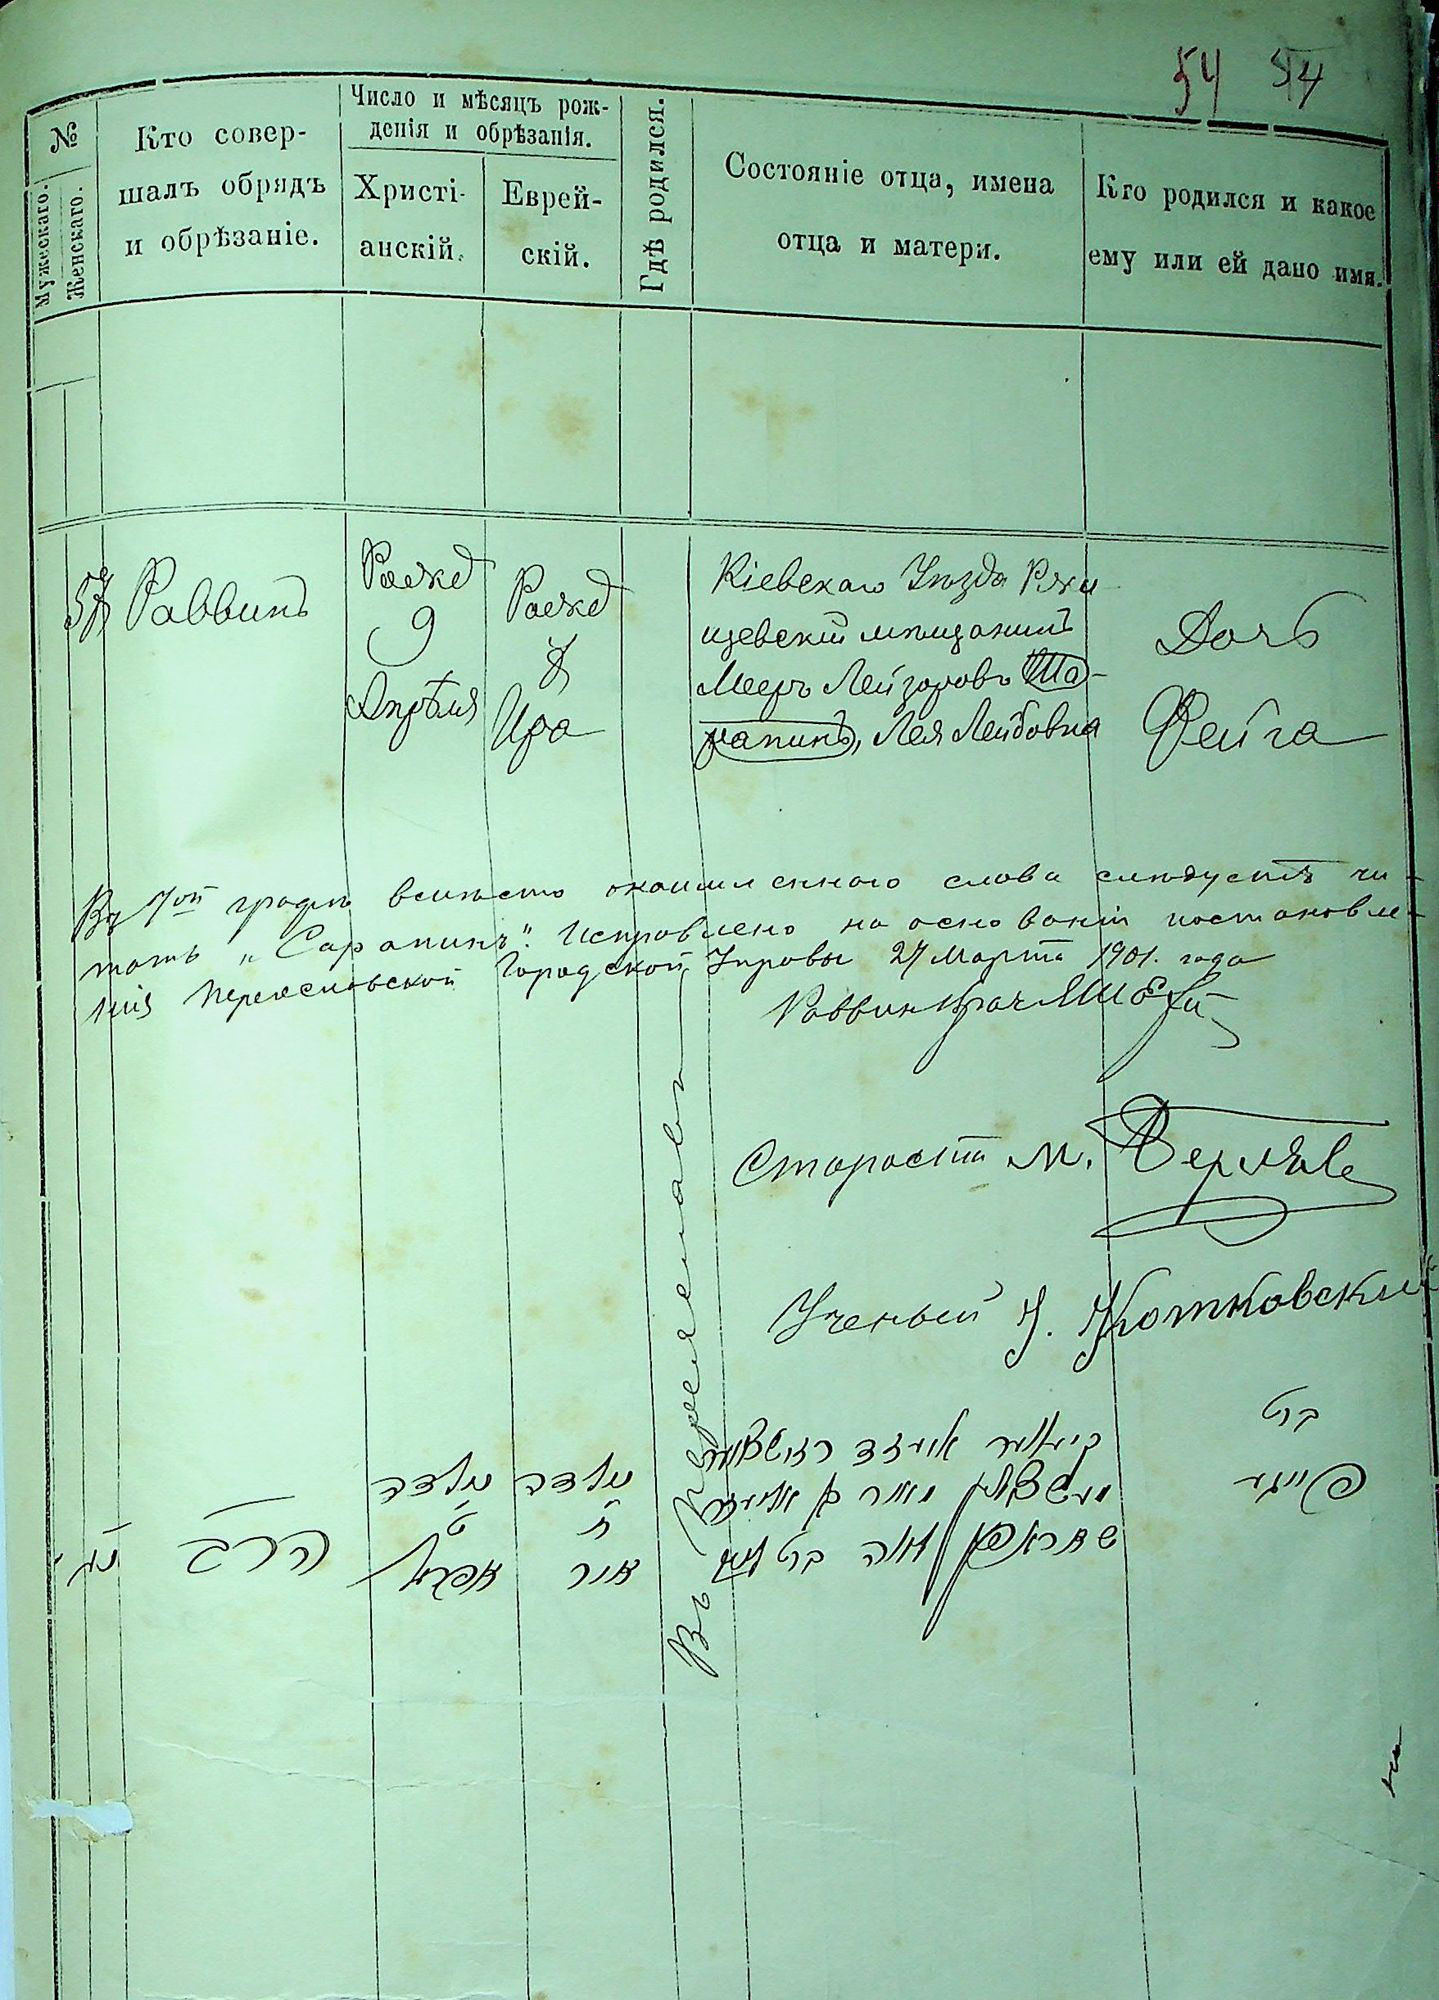 54 54
№
Мужескаго.
Женскаго.
Кто совер-
шалъ обрядъ
и обрѣзаніе.
Число и мѣсяцъ рож-
денія и обрѣзанія.
Христі-
анскій.
Еврей-
скій.
Гдѣ родился.
Состояніе отца, имена
отца и матери.
Кто родился и какое
ему или ей дано имя.
Раввинъ
Рожд
9
Апрѣля
Рожд
Ира
Кіевскаго Уѣзда Ржи
щевскій мѣщанинъ
Мееръ Лейзоровъ Ша-
рапинъ, Лея Лейбовна
Дочь
Фейга
Въ 7ой графѣ вмѣсто слова слѣдуетъ чи-
тать „Сарапинъ". Исправлено на основаніи постановле-
нія Переяславской Городской Управы 27 Марта 1901. года
Раввинъ Врач
Староста М.
Ученый
Въ Переяславѣ
ברת
פייגי
מולדה
ט
אפריל
מולדה
ח
אייר
הרב